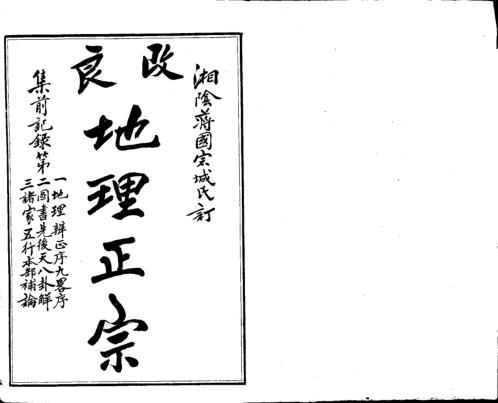 湘陰蔣國宗城氏訂
改良
地理正宗
集前記錄第
一地理辨正序九畧序
二圖書先後天八卦解
三諸家五行本部補論